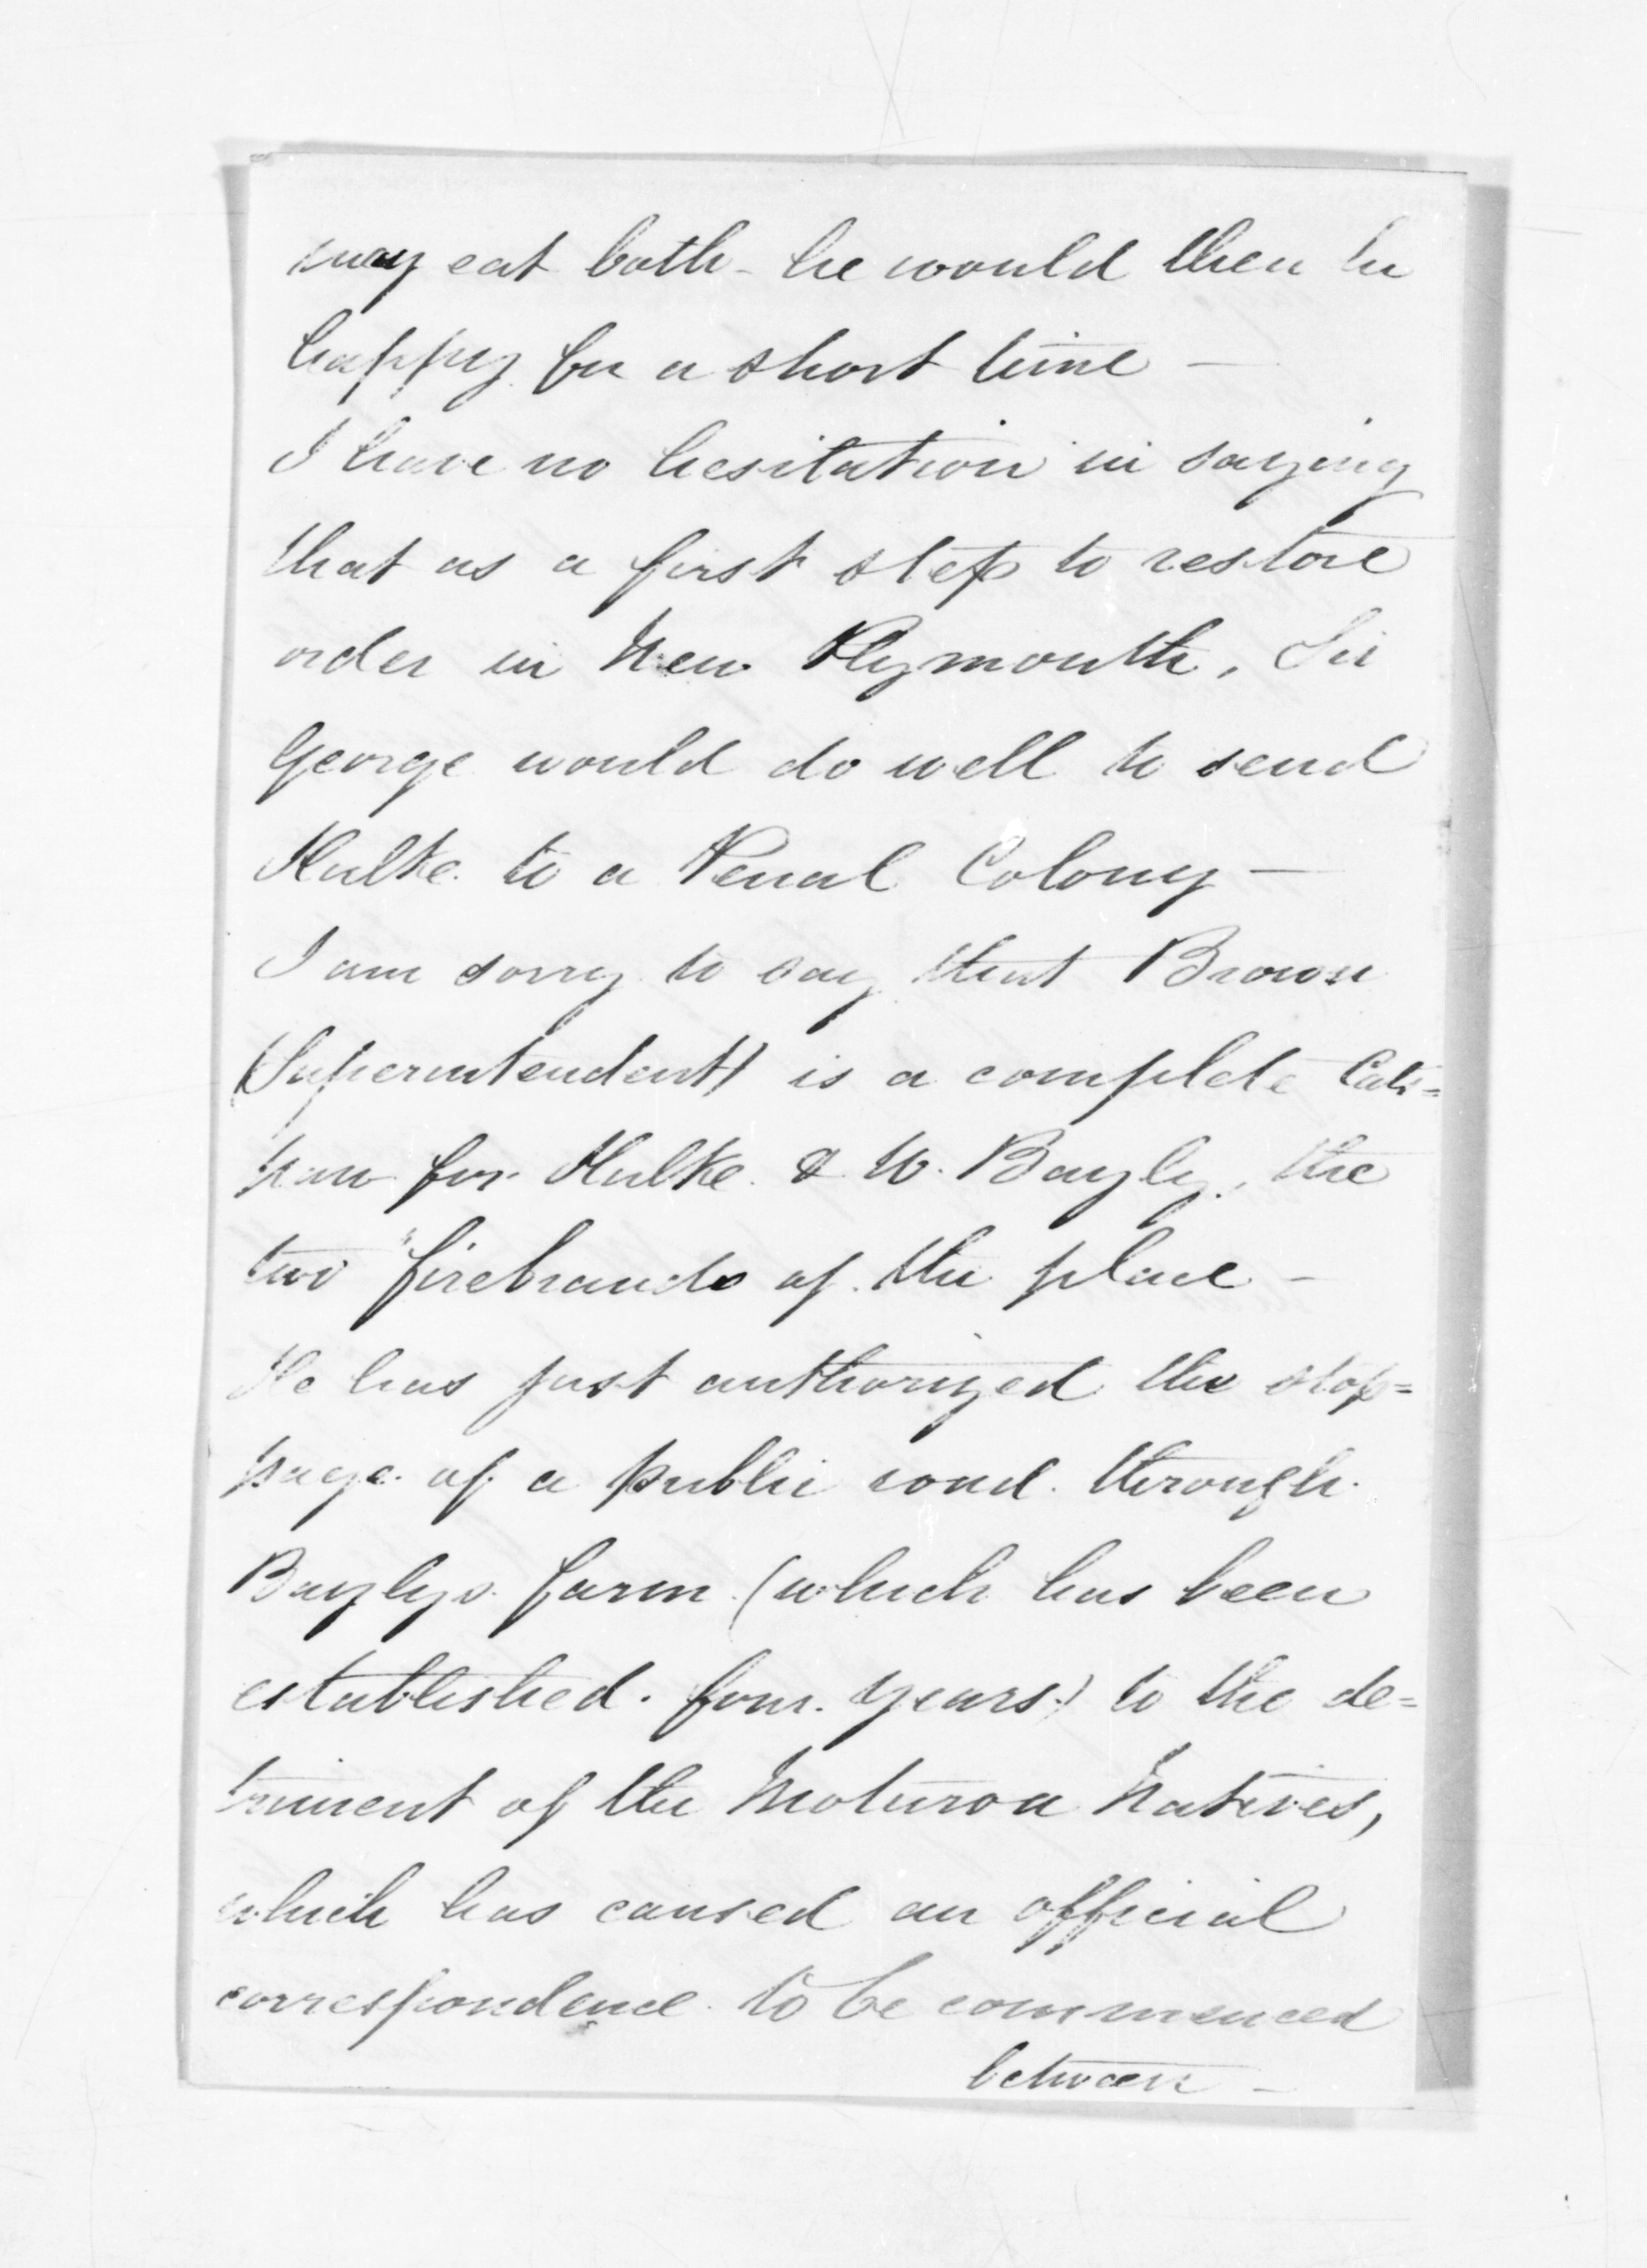 may eat both - he would then be
happy for a short time —
I have no hesitation in saying
that as a first step to restore
order in New Plymouth, Sir
George would do well to send
Hulke to a Penal Colony —
I am sorry to say that Brown
(Superintendent) is a complete Cats=
paw for Hulke & W. Bayly, the
two "firebrands of the place —
He has just authorized the stop=
page of a public road through
Bayly's farm (which has been
established four years) to the de=
triment of the Moturoa Natives,
which has caused an official
correspondence to be commenced
between —